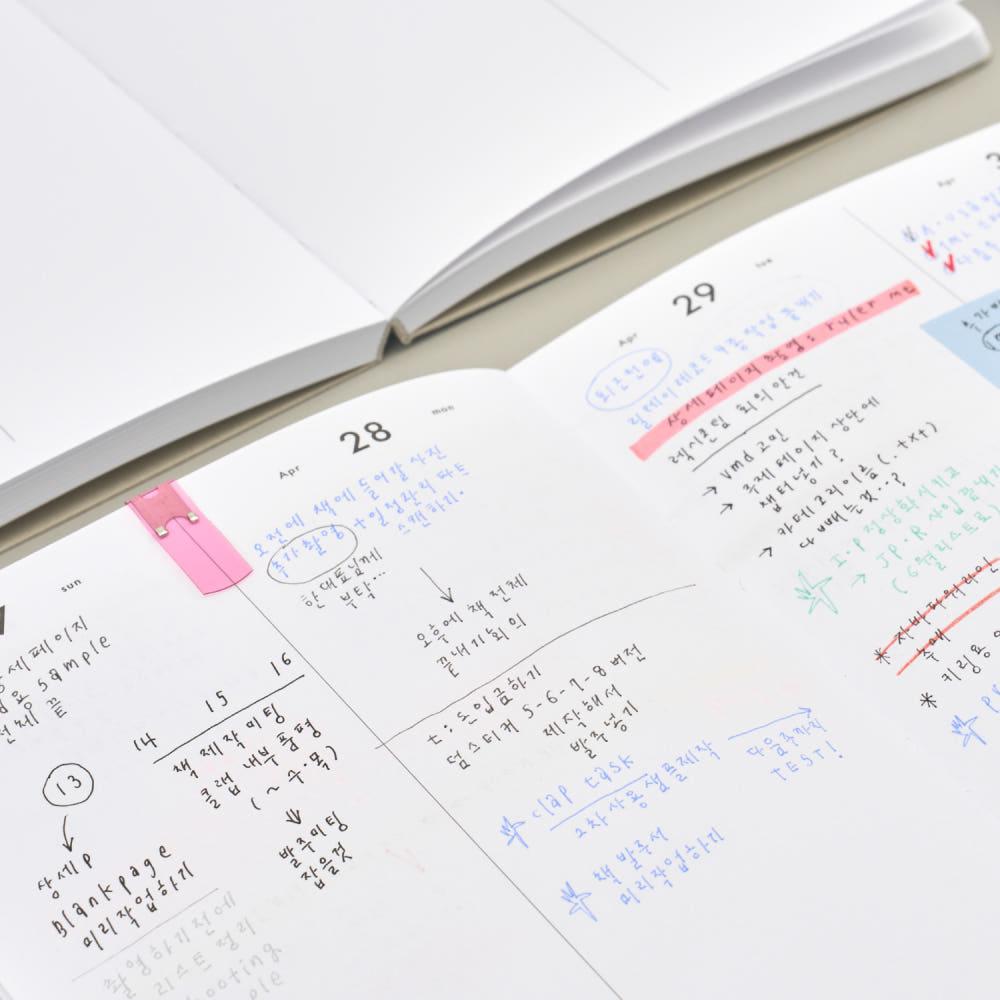 sun
세페이지
sample
끝
14 15 16
책 제작미팅
클랩 내부품평
(~수·목)
발주미팅
잡을것
13
상세P
Blankpage
미리작업하기
촬영하기전에
리스트정리
Apr 28 mon
오전에 책에 들어갈 사진
추가촬영 + 일정잔의 파트
스캔하기.
한대표님께
부탁...
오후에 책 전체
끝내기 회의
t: 돈입금하기
덤스티커 5-6-7-8버전
제작해서
발주넣기
clap task
2차사용샘플제작
다음주까지
TEST!
책 발주서
미리작업하기
Apr 29 tue
릴레이레코드 4종작업 끝내기
상세페이지 촬영: ruler 세트
렉시콘팀 회의안건
→ vmd 고민
→ 주제 페이지 상단에
챕터넣기?
→ 카테고리이름(.txt)
다 빼는것..?
I·P정상화시키고
→ JP·R 사입끝내기
(6월리스트로)
* 자바파워라인
수배
* 키링용
Apr